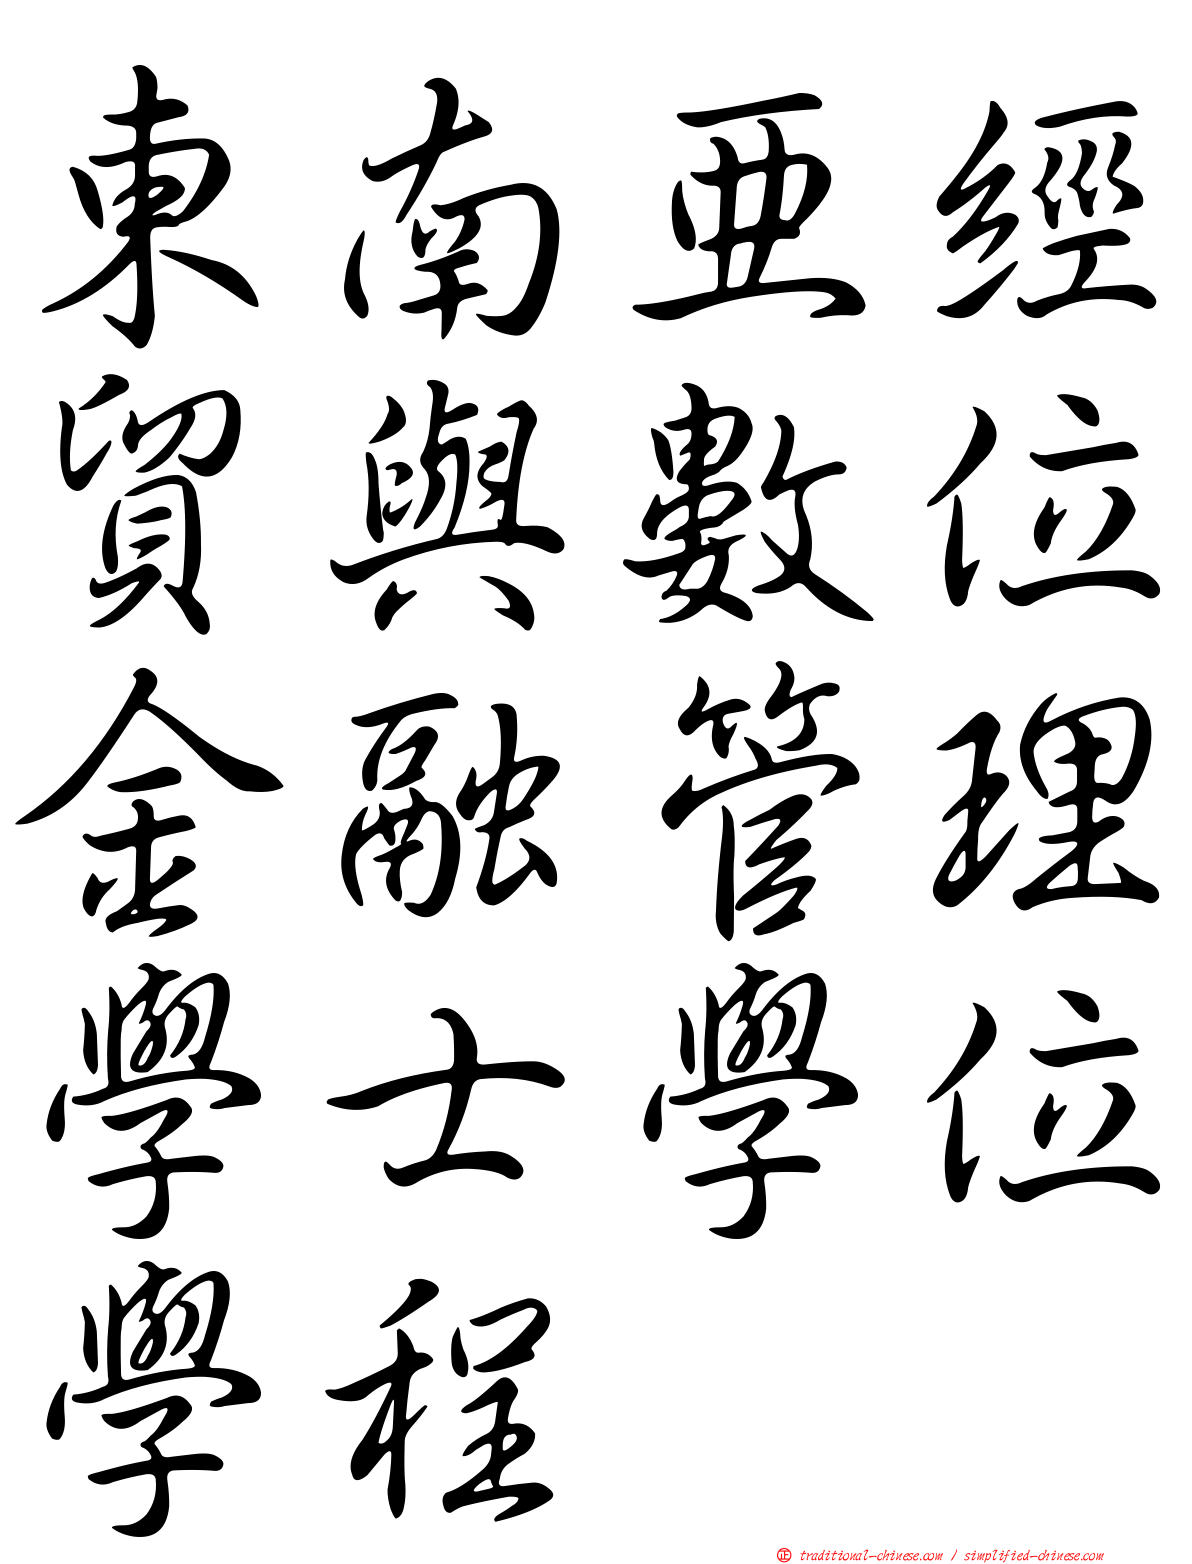 東南亞經
貿與數位
金融管理
學士學位
學程
正 traditional-chinese.com / simplified-chinese.com